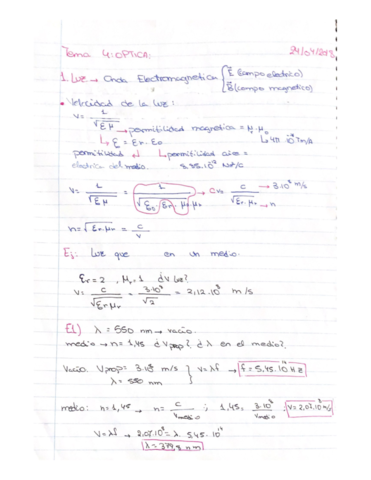 Tema 4: OPTICA:
24/04/2018
1. Luz → Onda Electromagnetica { E⃗ (campo electrico)
B⃗ (campo magnetico)
• Velocidad de la luz:
v = 1 / √(ε μ) → permitilidad magnetica = μr·μ0
↳ ε = εr·ε0 ↳ 4π·10⁻⁷ m/A
permitilidad el ↳ permitilidad aire =
electrica del medio. 8.85·10⁻¹² N·A/C
v = 1/√(ε μ) = 1/√(ε0 εr μr μ0) → C = c/√(εr·μr) → 3·10⁸ m/s
→ n
n = √(εr·μr) = c/v
Ej: Luz que en un medio.
εr = 2 , μr = 1 ¿V luz?
v = c/√(εr μr) = 3·10⁸/√2 = 2,12·10⁸ m/s
E1) λ = 550 nm → vacio.
medio → n = 1,45 ¿Vprop?, ¿λ en el medio?
Vacio. Vprop = 3·10⁸ m/s } v = λf → f = 5,45·10¹⁴ Hz
λ = 550 nm
medio: n = 1,45 → n = c/Vmedio ; 1,45 = 3·10⁸/Vmedio , V = 2,07·10⁸ m/s
V = λf → 2,07·10⁸ = λ · 5,45·10¹⁴
λ = 379,8 nm